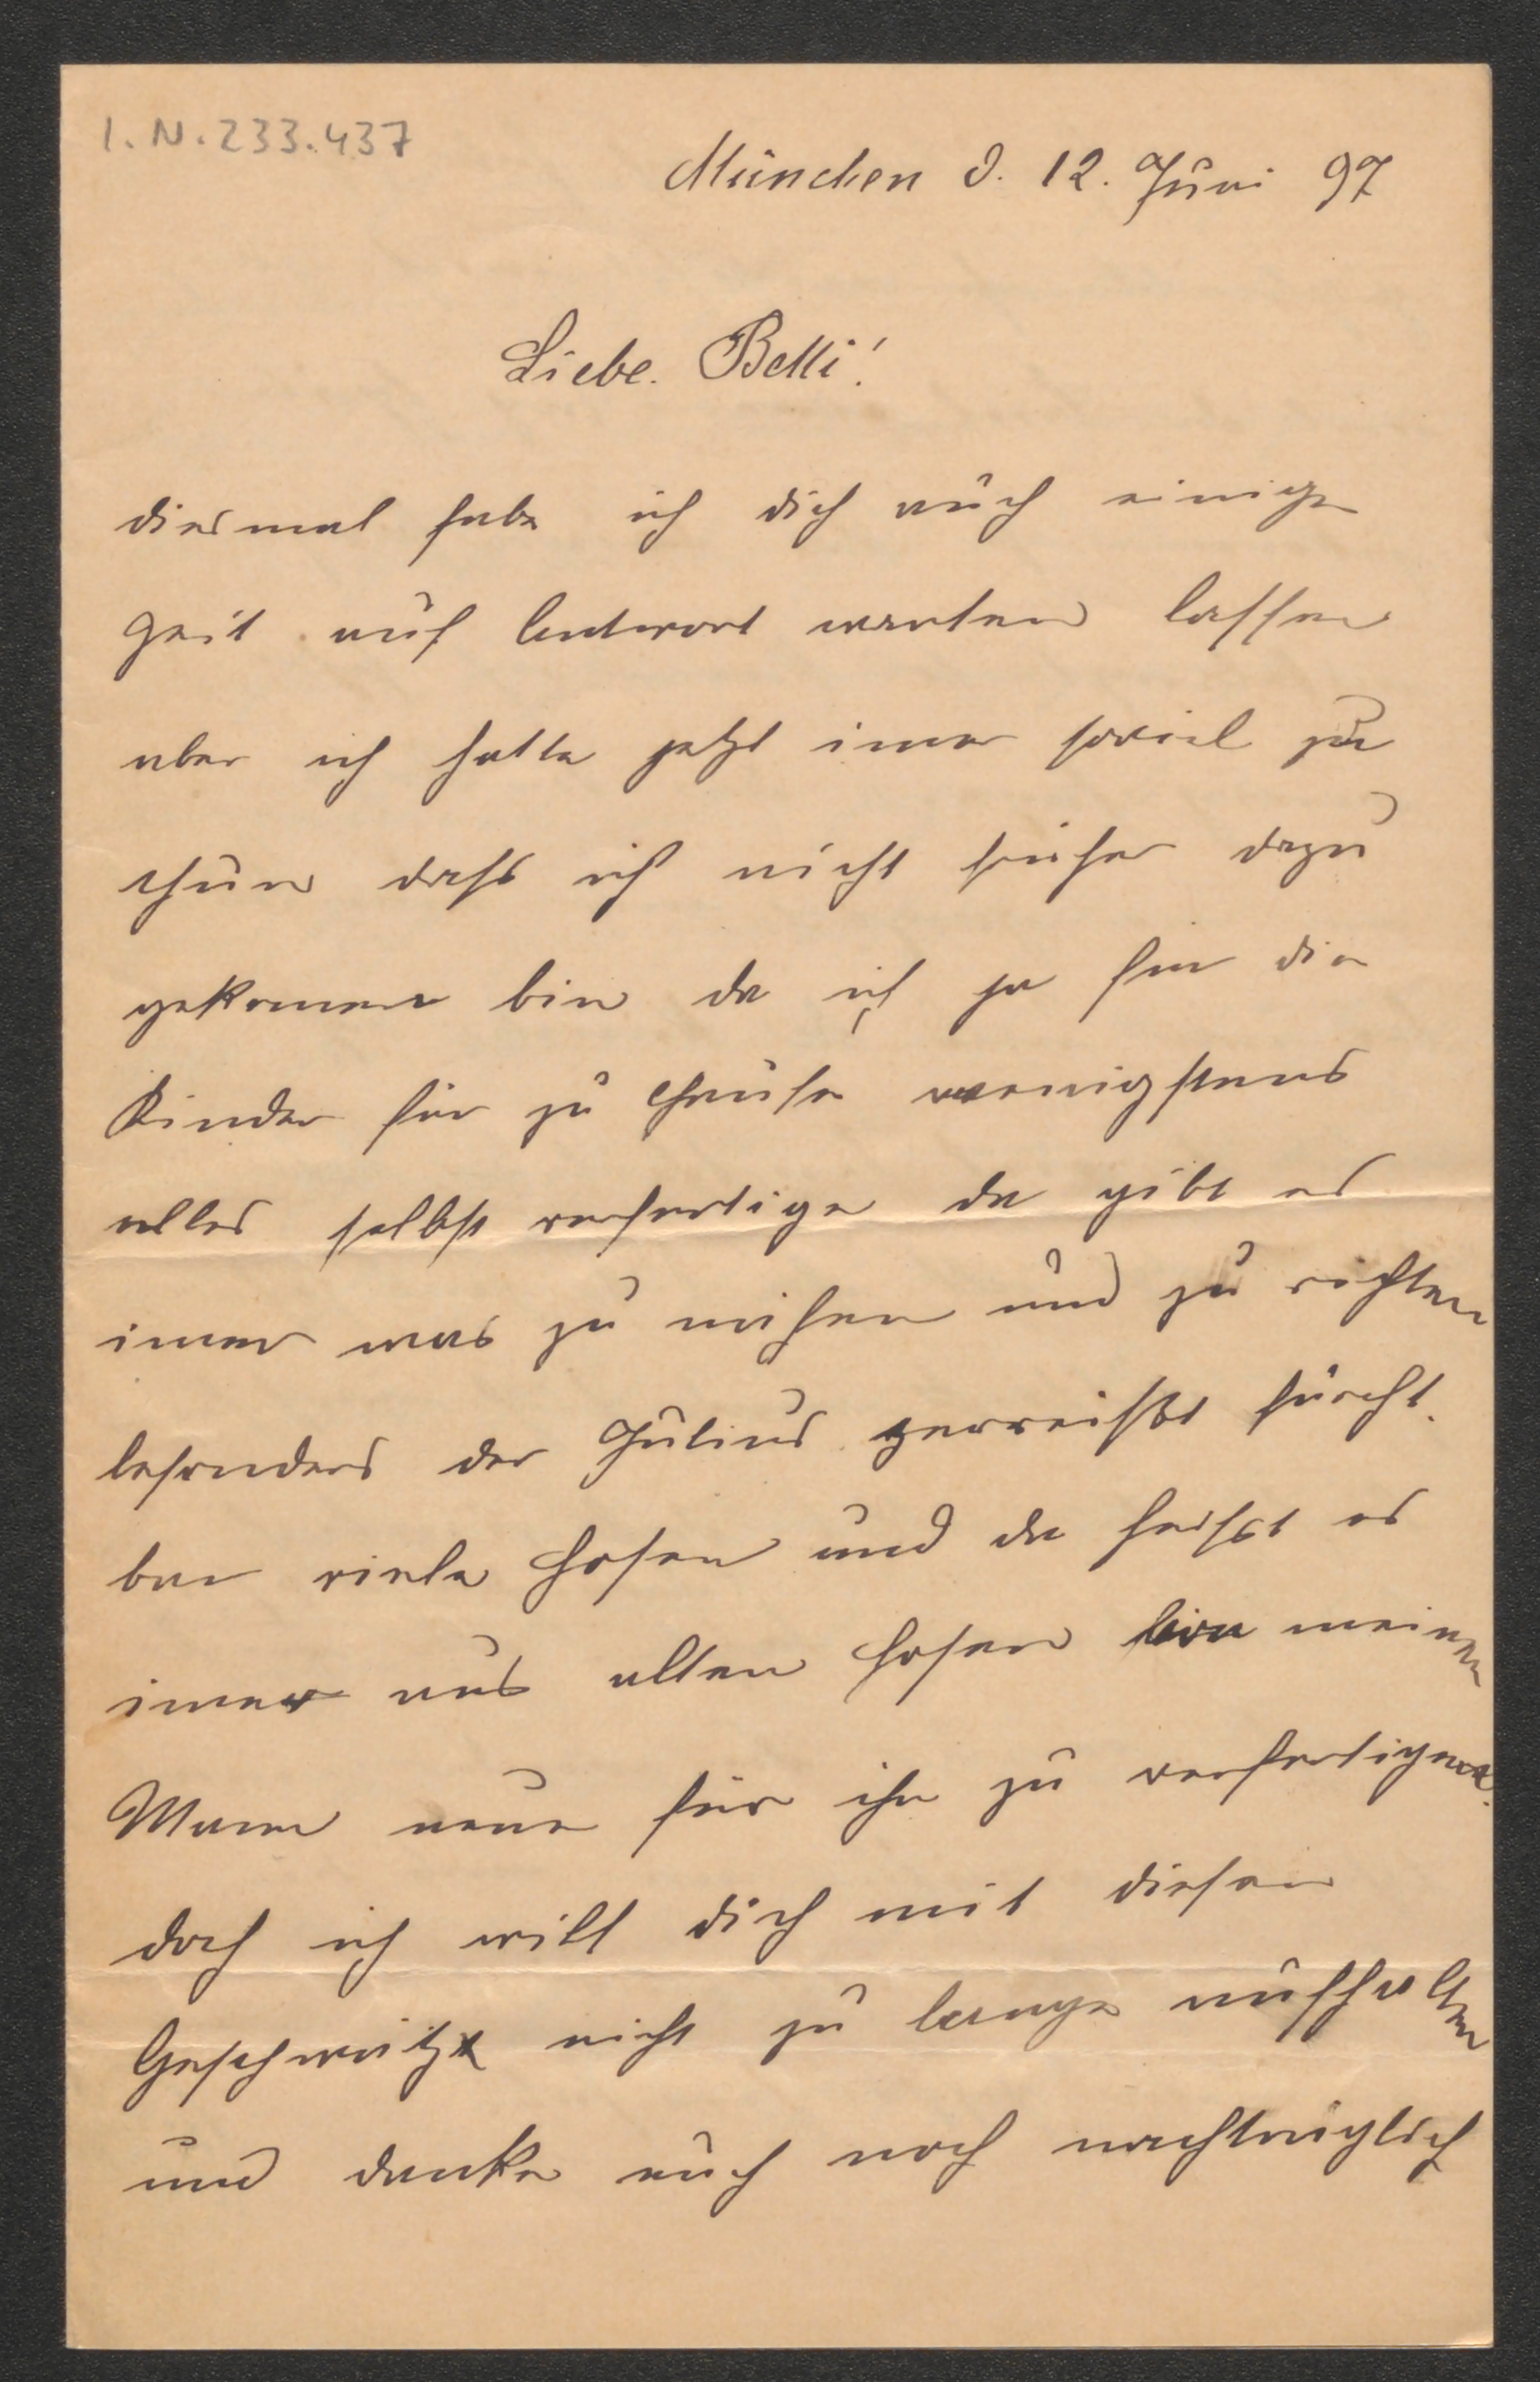 I.N.233.437
München d. 12. Juni 97
Liebe Betti!
diesmal habe ich dich auch einige
Zeit auf Antwort warten lassen
aber ich hatte jetzt imer soviel zu
thun dahs ich nicht früher dazu
gekomen bin da ich ja für die
Kinder für zu Hause wenigstens
alles selbst verfertige da gibt es
imer was zu nähen und zu richten
besonders der Julius zerreißt fürcht
bar viele Hosen und da heißt es
imer aus alten Hosen von meinen
Mann neue für ihn zu verfertigen.
doch ich will dich mit diesen
Geschwätz nicht zu lange aufhalten
und danke euch noch nachträglich